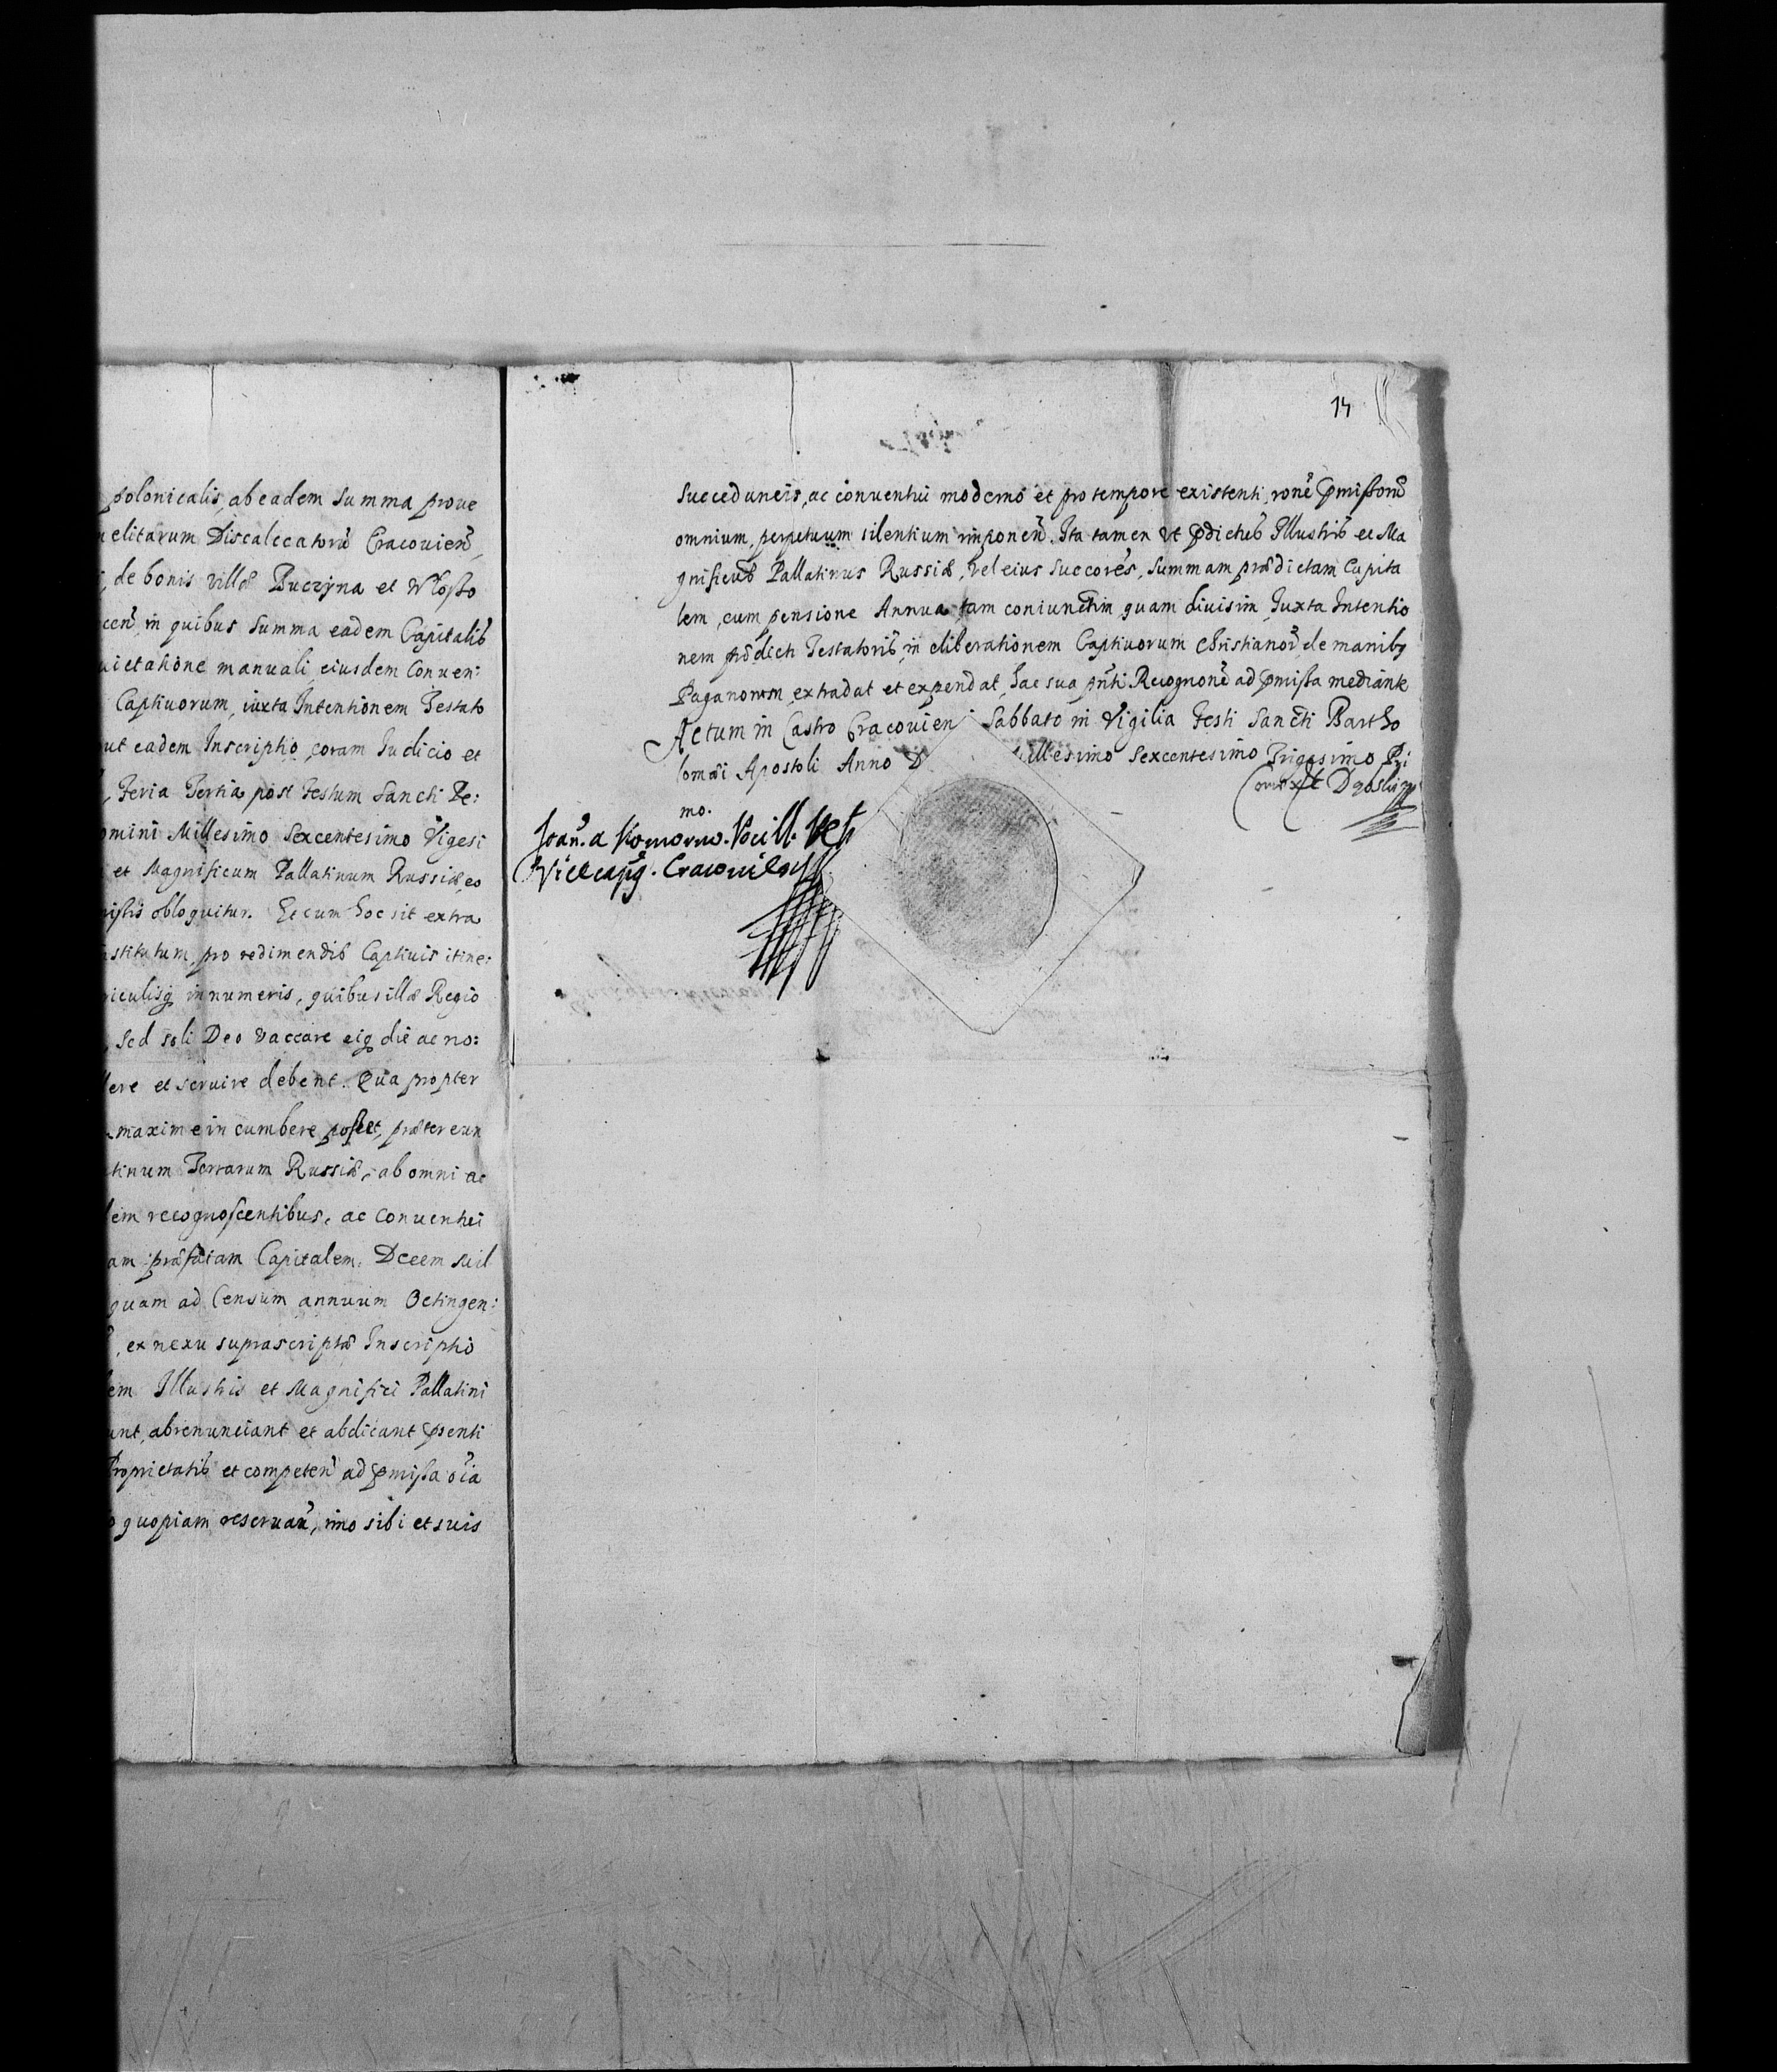 polonicalis, ab eadem Summa proue
elitarum Discalceatorũ Cracouieñ,
de bonis villæ Buczyna et Włosto
ceñ, in quibus Summa eadem Capitalis
uietatione manuali eiusdem Conuen:
Captiuorum, iuxta Intentionem Testato
ut eadem Inscriptio, coram Iudicio et
, Feria Tertia post Festum Sancti Pe:
omini Millesimo Sexcentesimo Vigesi
et Magnificum Pallatinum Russiæ, eo
obloquitur. Et cum hoc sit extra
stitutum, pro redimendis Captiuis itine:
riculisq innumeris, quibus illæ Regio
, sed soli Deo vaccare eiq die ac no:
ere et seruire debent. Qua propter
maxime in cumbere posset, præter eun
tinum Terrarum Russiæ, ab omni ac
em recognoscentibus, ac Conuentui
am præfatam Capitalem, Decem Mil
quam ad Censum annuum Octingen:
, ex nexu suprascriptæ Inscriptio
em Illustris et Magnifici Pallatini
unt, abrenunciant et abdicant pñti
Proprietatis et competeñ ad pmissa oĩa
quopiam reseruañ, imo sibi et suis
14
succedaneis, ac conuentui moderno et pro tempore existenti, ronẽ pmissorũ
omnium, perpetuum silentium imponeñ. Ita tamen vt pdictus Illustris et Ma
gnificus Pallatinus Russiæ, vel eius succores, Summam prædictam Capita
lem, cum pensione Annua, tam coniunctim quam diuisim, Iuxta Intentio
nem prædicti Testatoris, in eliberationem Captiuorum Christianorũ, de manibq
Paganorum, extradat et expendat, hac sua pñti Recognonẽ ad pmissa mediante
Actum in Castro Cracouien Sabbato in Vigilia Festi Sancti Bartho
lomæi Apostoli Anno D illesimo Sexcentesimo Trigesimo Pri
mo.
Ioañ. a Komorow.
Vicecapĩ. Cracouien